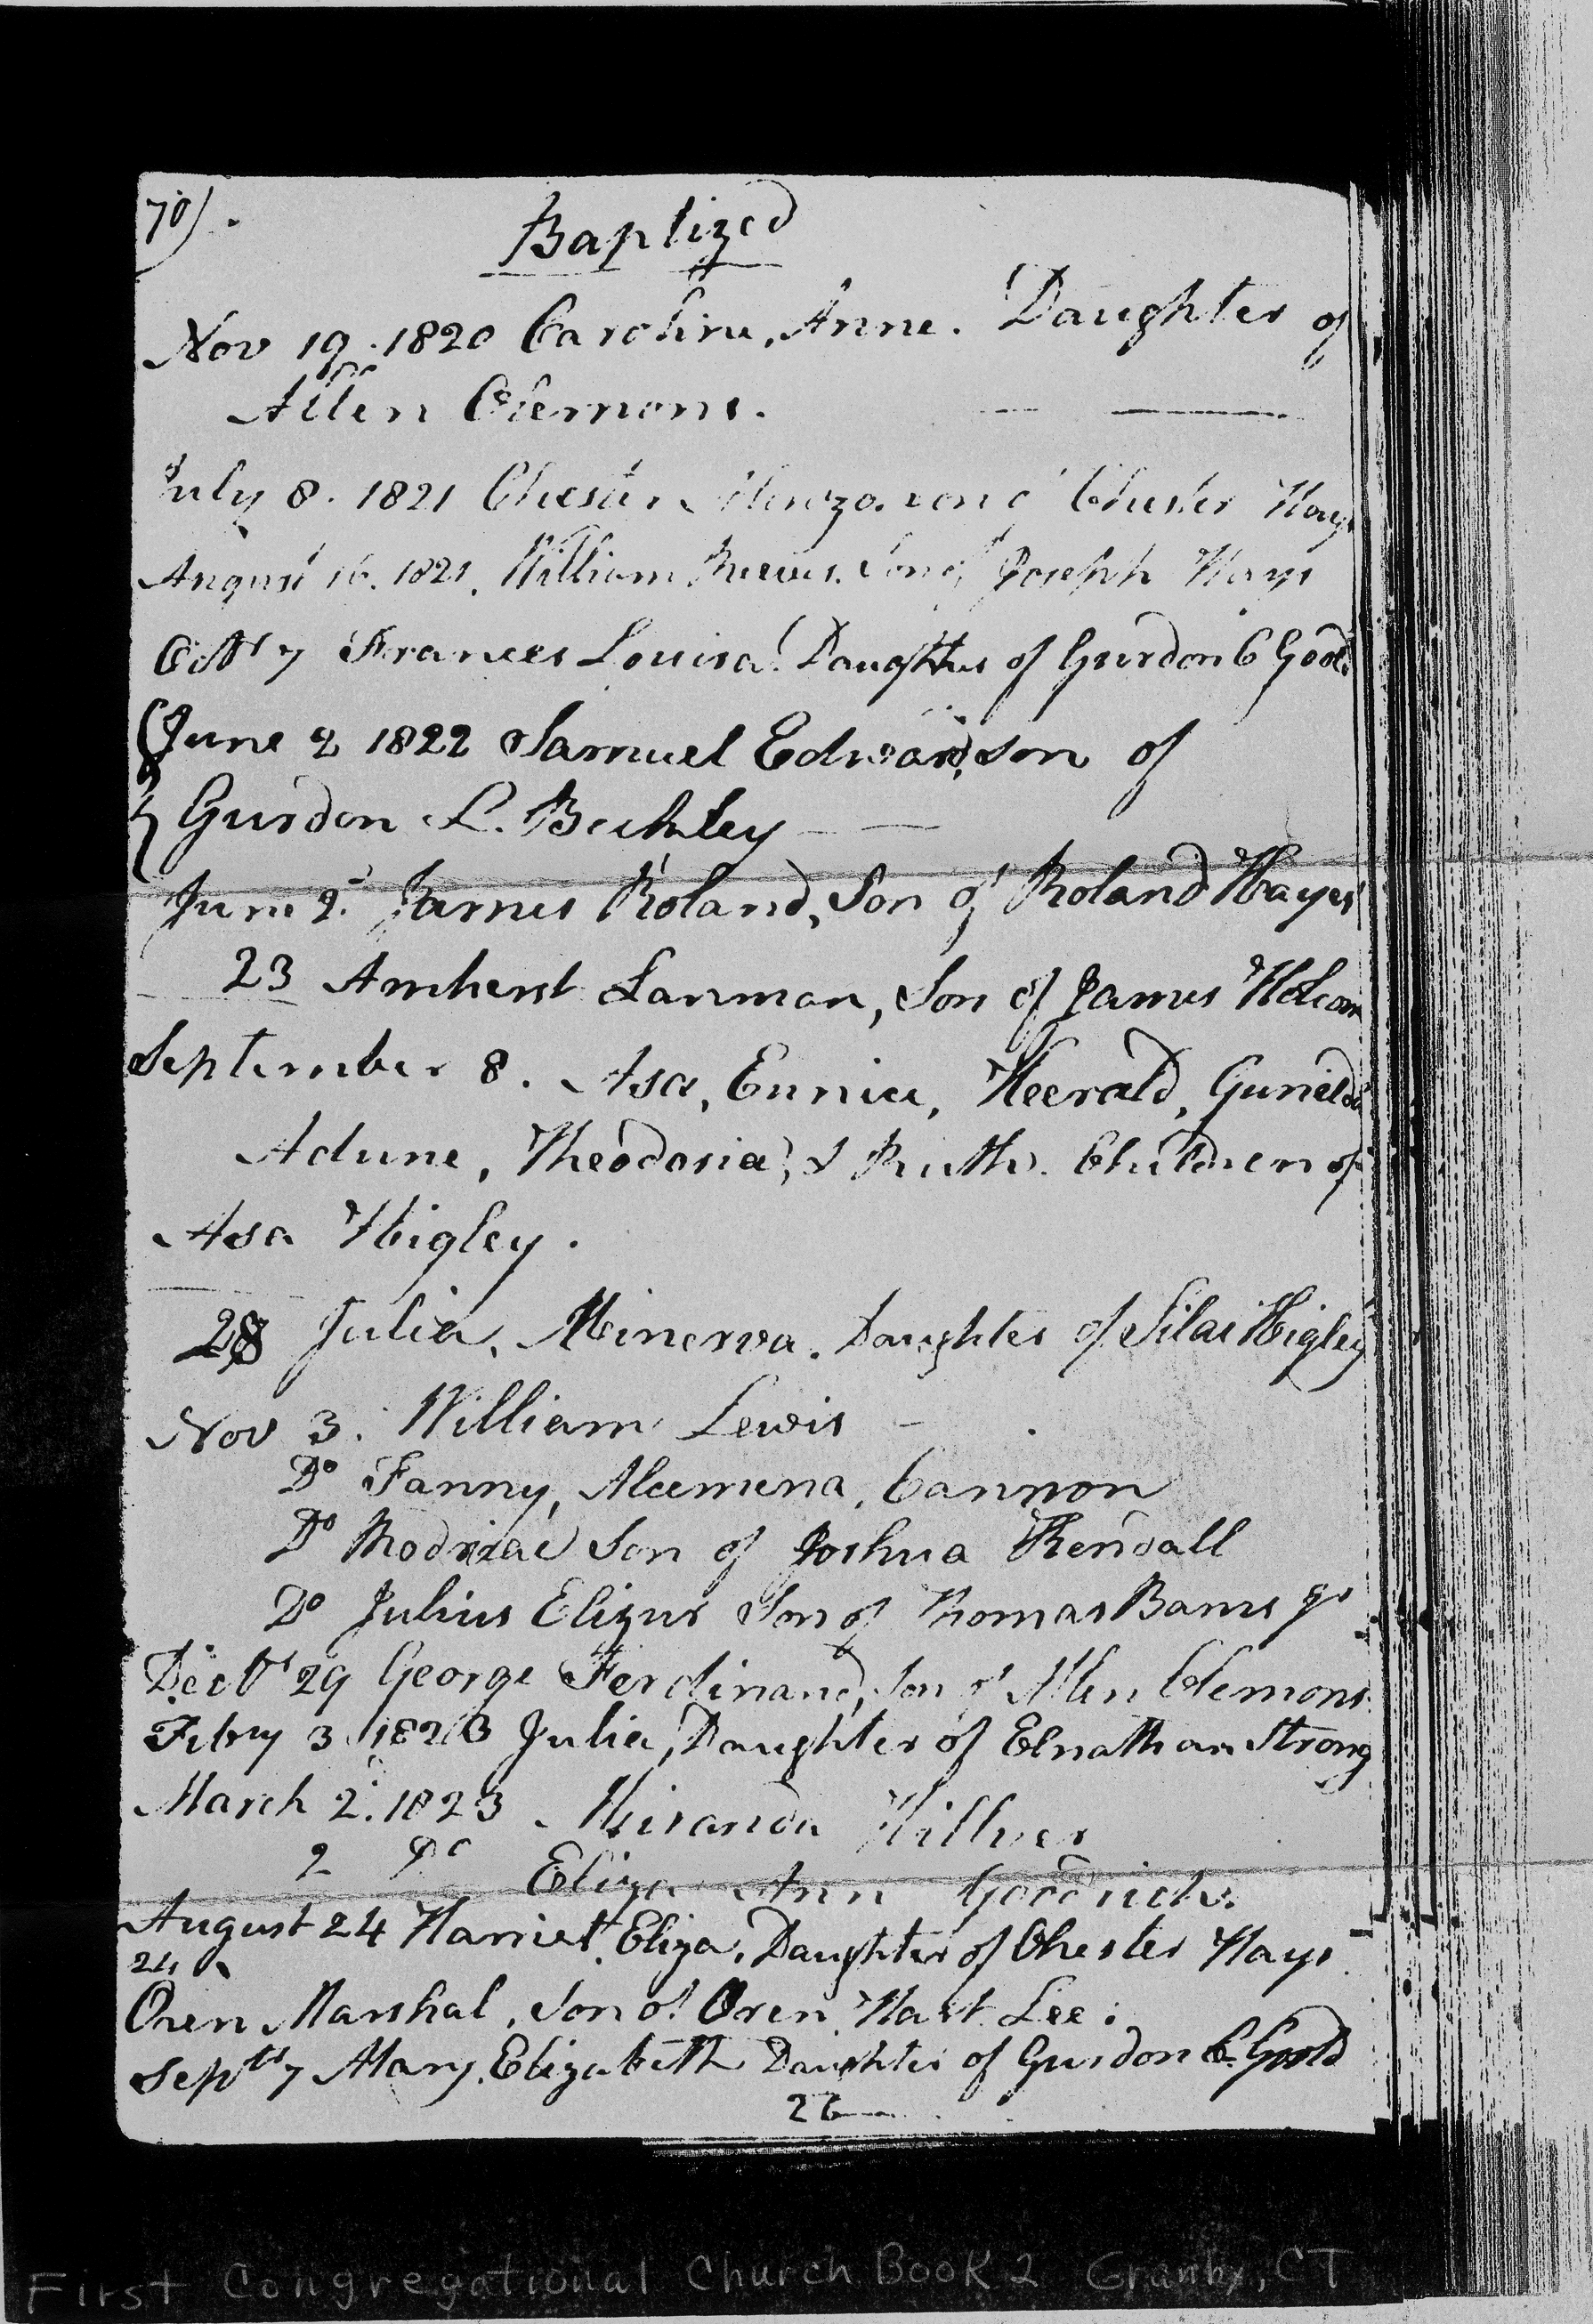 70).
Baptized
Nov 19. 1820 Caroline, Anne. Daughter of
Allen Clemons.
July 8. 1821 Chester Alonzo. son of Chester Hays
August 16. 1821. William Reeves. Son of Joseph Hays
Octbr 7 Frances Louisa. Daughter of Gurdon C Goold
June 2 1822 Samuel Edward, son of
Gurdon L. Beckley
June 2. James Roland, Son of Roland Hayes
23 Amherst Lanman, Son of James Holcom
September 8. Asa, Eunice, Heerald, Gunilda
Adune, Theodosia, & Ruth. Children of
Asa Higley.
28 Julia, Minerva. Daughter of Silas Higley
Nov 3. William Lewis
Do Fanny, Alcemena, Cannon
Do son of Joshua Kendall
Do Julius Elizur Son of Thomas Barns Jr
Decbr 29 George Ferdinand, Son of Allen Clemons
Febry 3 1823 Julia, Daughter of Elnathan Strong
March 2. 1823 Miranda Hillyer
2 Do Eliza Ann Goodrich.
August 24 Harriet, Eliza, Daughter of Chester Hays
24
Oren Marshal, Son of Oren Hart Lee.
Septbr 7 Mary Elizabeth Daughter of Gurdon C. Goold
26
First Congregational Church Book 2 Granby, CT